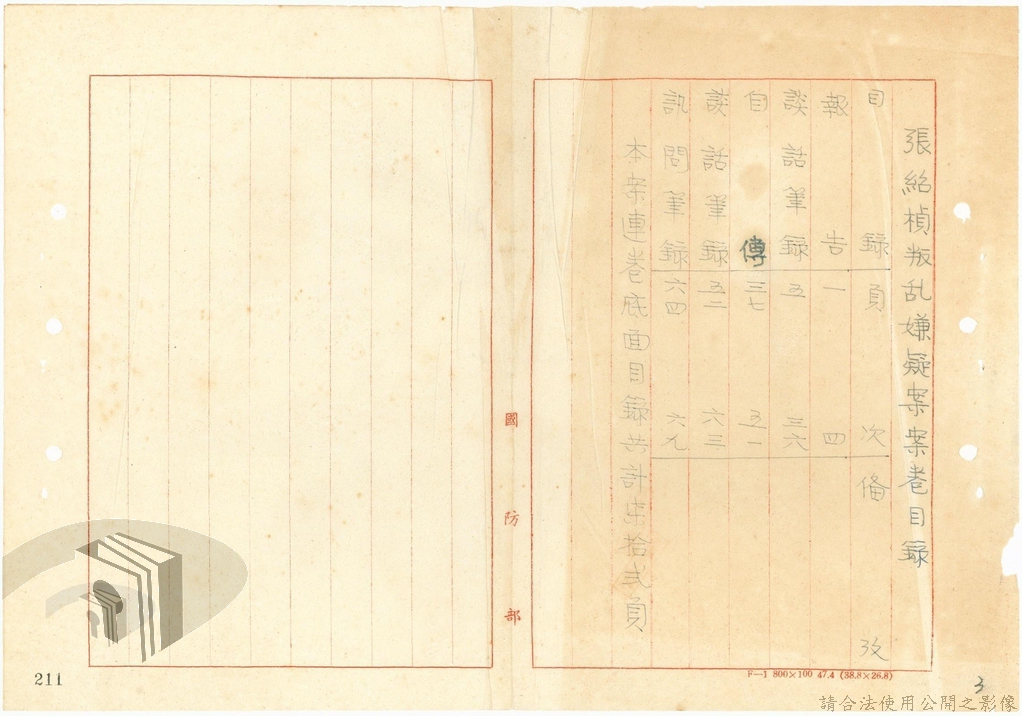 張紹楨叛乱嫌疑案案卷目録
目録 頁次 俻攷
報告 一 四
談話筆録 五 三六
自傳 三七 五一
談話筆録 五二 六三
訊問筆録 六四 六九
本案連卷底面目録共計柒拾弍頁
國防部
F—1 800×100 47.4 (38.8×26.8)
3
211
請合法使用公開之影像